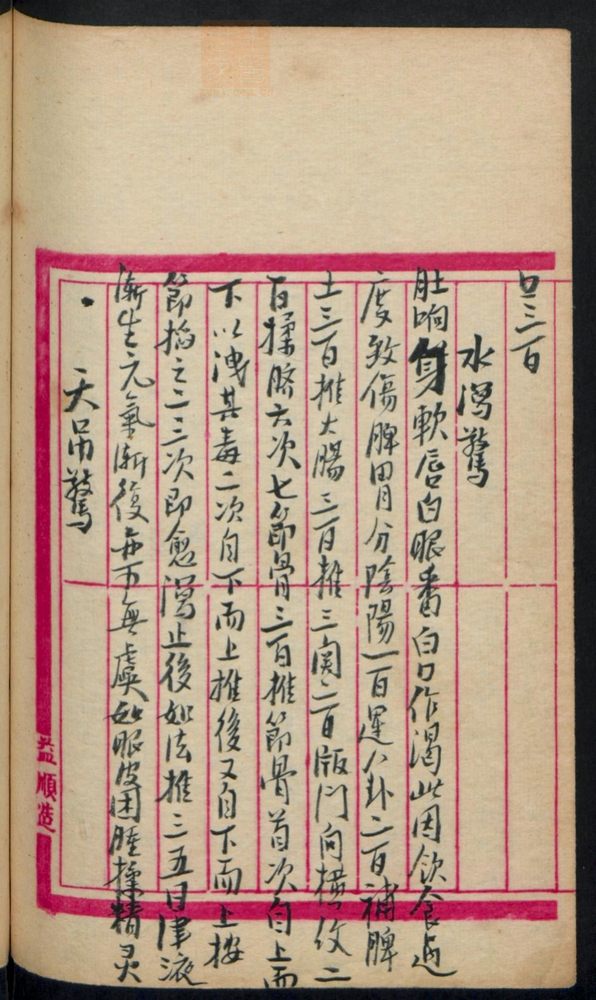 呂三百
水瀉驚
肚响身軟唇白眼番白口作渴此因飲食過
度致傷脾胃分陰陽一百運八卦二百補脾
土三百推大腸三百推三関二百版門向橫紋二
百揉臍六次七節骨三百推節骨首次自上而
下以洩其毒二次自下而上推後又自下而上按
節掐之二三次即愈瀉止後如法推三五日津液
漸生元氣漸復毋無虞如眼皮困腫揉精灵
天吊驚
益順造